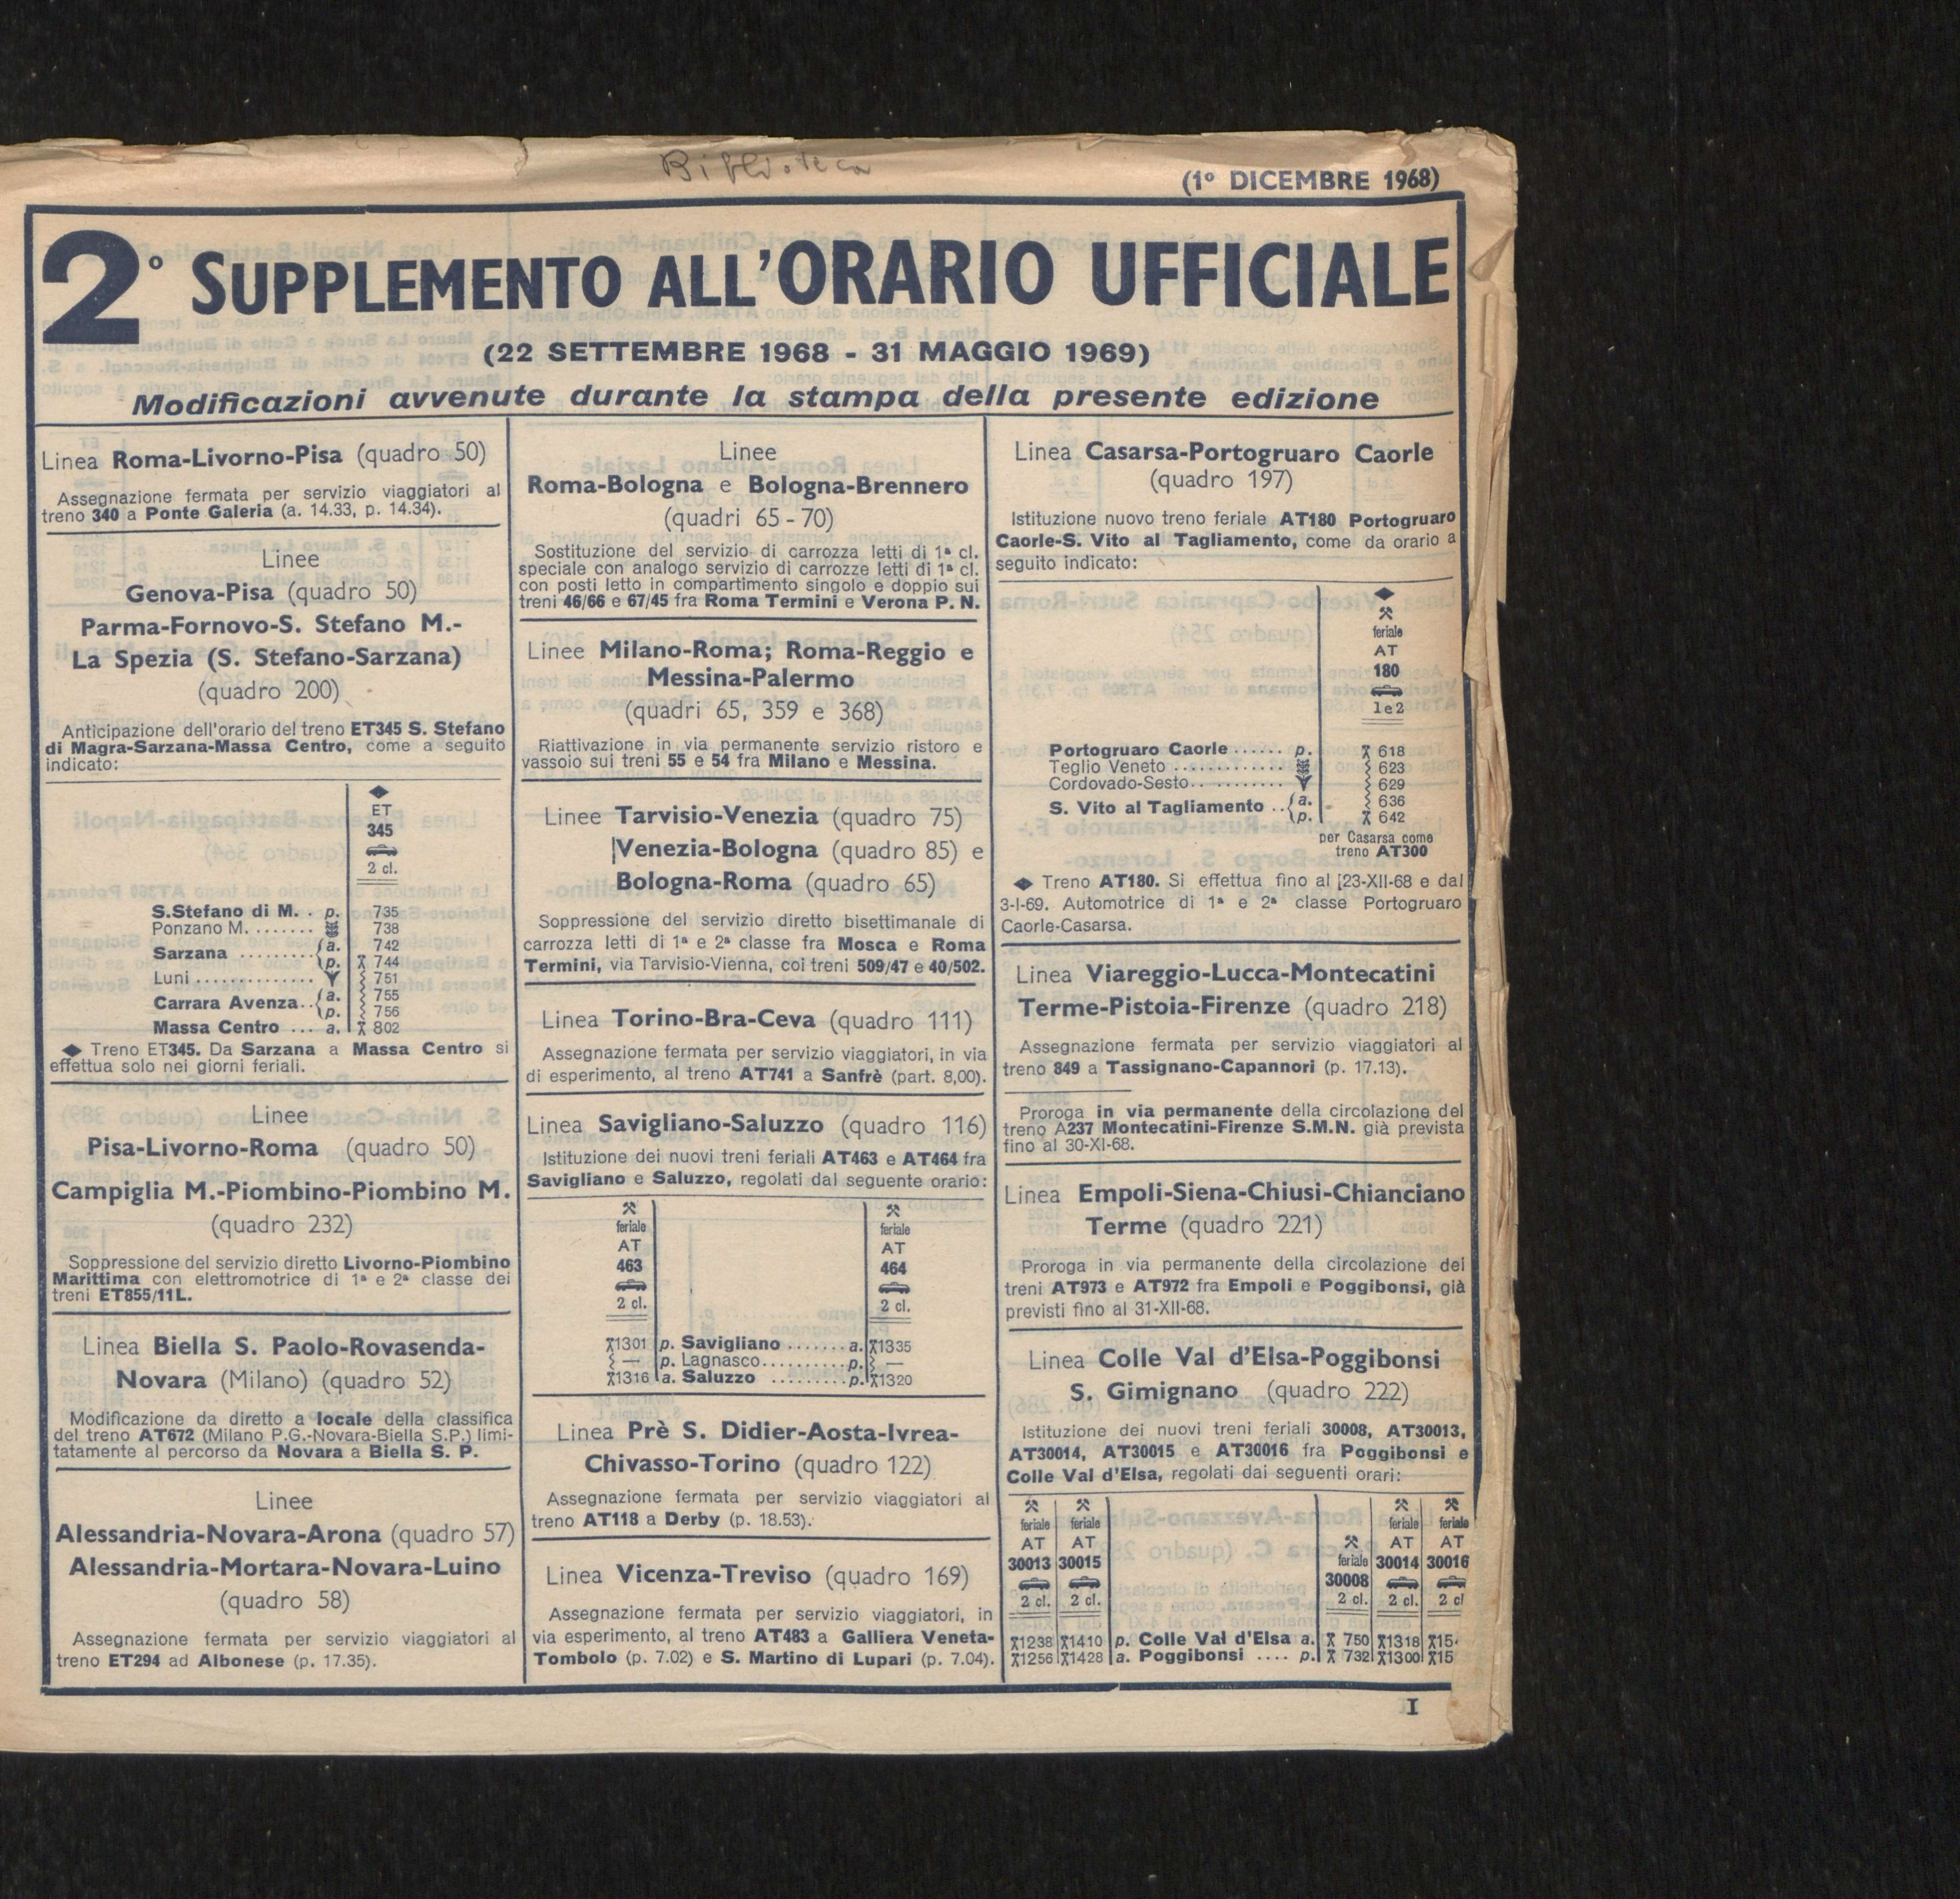 Biblioteca
(1º DICEMBRE 1968)
2º SUPPLEMENTO ALL'ORARIO UFFICIALE
(22 SETTEMBRE 1968 - 31 MAGGIO 1969)
Modificazioni avvenute durante la stampa della presente edizione
Linea Roma-Livorno-Pisa (quadro 50)
Assegnazione fermata per servizio viaggiatori al
treno 340 a Ponte Galeria (a. 14.33, p. 14.34).
Linee
Genova-Pisa (quadro 50)
Parma-Fornovo-S. Stefano M.-
La Spezia (S. Stefano-Sarzana)
(quadro 200)
Anticipazione dell'orario del treno ET345 S. Stefano
di Magra-Sarzana-Massa Centro, come a seguito
indicato:
ET
345
2 cl.
S.Stefano di M. . p. 735
Ponzano M. ....... 738
Sarzana ......... a. 742
p. 744
Luni ............. 751
Carrara Avenza.. a. 755
p. 756
Massa Centro ... a. 802
◆ Treno ET345. Da Sarzana a Massa Centro si
effettua solo nei giorni feriali.
Linee
Pisa-Livorno-Roma (quadro 50)
Campiglia M.-Piombino-Piombino M.
(quadro 232)
Soppressione del servizio diretto Livorno-Piombino
Marittima con elettromotrice di 1ª e 2ª classe dei
treni ET855/11L.
Linea Biella S. Paolo-Rovasenda-
Novara (Milano) (quadro 52)
Modificazione da diretto a locale della classifica
del treno AT672 (Milano P.G.-Novara-Biella S.P.) limi-
tatamente al percorso da Novara a Biella S. P.
Linee
Alessandria-Novara-Arona (quadro 57)
Alessandria-Mortara-Novara-Luino
(quadro 58)
Assegnazione fermata per servizio viaggiatori al
treno ET294 ad Albonese (p. 17.35).
Linee
Roma-Bologna e Bologna-Brennero
(quadri 65 - 70)
Sostituzione del servizio di carrozza letti di 1ª cl.
speciale con analogo servizio di carrozze letti di 1ª cl.
con posti letto in compartimento singolo e doppio sui
treni 46/66 e 67/45 fra Roma Termini e Verona P. N.
Linee Milano-Roma; Roma-Reggio e
Messina-Palermo
(quadri 65, 359 e 368)
Riattivazione in via permanente servizio ristoro e
vassoio sui treni 55 e 54 fra Milano e Messina.
Linee Tarvisio-Venezia (quadro 75)
Venezia-Bologna (quadro 85) e
Bologna-Roma (quadro 65)
Soppressione del servizio diretto bisettimanale di
carrozza letti di 1ª e 2ª classe fra Mosca e Roma
Termini, via Tarvisio-Vienna, coi treni 509/47 e 40/502.
Linea Torino-Bra-Ceva (quadro 111)
Assegnazione fermata per servizio viaggiatori, in via
di esperimento, al treno AT741 a Sanfrè (part. 8,00).
Linea Savigliano-Saluzzo (quadro 116)
Istituzione dei nuovi treni feriali AT463 e AT464 fra
Savigliano e Saluzzo, regolati dal seguente orario:
feriale feriale
AT AT
463 464
2 cl. 2 cl.
1301 p. Savigliano ....... a. 1335
— p. Lagnasco.......... p. —
1316 a. Saluzzo ......... p. 1320
Linea Prè S. Didier-Aosta-Ivrea-
Chivasso-Torino (quadro 122)
Assegnazione fermata per servizio viaggiatori al
treno AT118 a Derby (p. 18.53).
Linea Vicenza-Treviso (quadro 169)
Assegnazione fermata per servizio viaggiatori, in
via esperimento, al treno AT483 a Galliera Veneta-
Tombolo (p. 7.02) e S. Martino di Lupari (p. 7.04).
Linea Casarsa-Portogruaro Caorle
(quadro 197)
Istituzione nuovo treno feriale AT180 Portogruaro
Caorle-S. Vito al Tagliamento, come da orario a
seguito indicato:
feriale
AT
180
1e2
Portogruaro Caorle ...... p. 618
Teglio Veneto ............ 623
Cordovado-Sesto.. ........ 629
S. Vito al Tagliamento .. a. 636
p. 642
per Casarsa come
treno AT300
◆ Treno AT180. Si effettua fino al [23-XII-68 e dal
3-I-69. Automotrice di 1ª e 2ª classe Portogruaro
Caorle-Casarsa.
Linea Viareggio-Lucca-Montecatini
Terme-Pistoia-Firenze (quadro 218)
Assegnazione fermata per servizio viaggiatori al
treno 849 a Tassignano-Capannori (p. 17.13).
Proroga in via permanente della circolazione del
treno A237 Montecatini-Firenze S.M.N. già prevista
fino al 30-XI-68.
Linea Empoli-Siena-Chiusi-Chianciano
Terme (quadro 221)
Proroga in via permanente della circolazione dei
treni AT973 e AT972 fra Empoli e Poggibonsi, già
previsti fino al 31-XII-68.
Linea Colle Val d'Elsa-Poggibonsi
S. Gimignano (quadro 222)
Istituzione dei nuovi treni feriali 30008, AT30013,
AT30014, AT30015 e AT30016 fra Poggibonsi e
Colle Val d'Elsa, regolati dai seguenti orari:
feriale feriale feriale feriale
AT AT AT AT
30013 30015 feriale 30014 30016
30008
2 cl. 2 cl. 2 cl. 2 cl. 2 cl
1238 1410 p. Colle Val d'Elsa a. 750 1318 15
1256 1428 a. Poggibonsi .... p. 732 1300 15
I